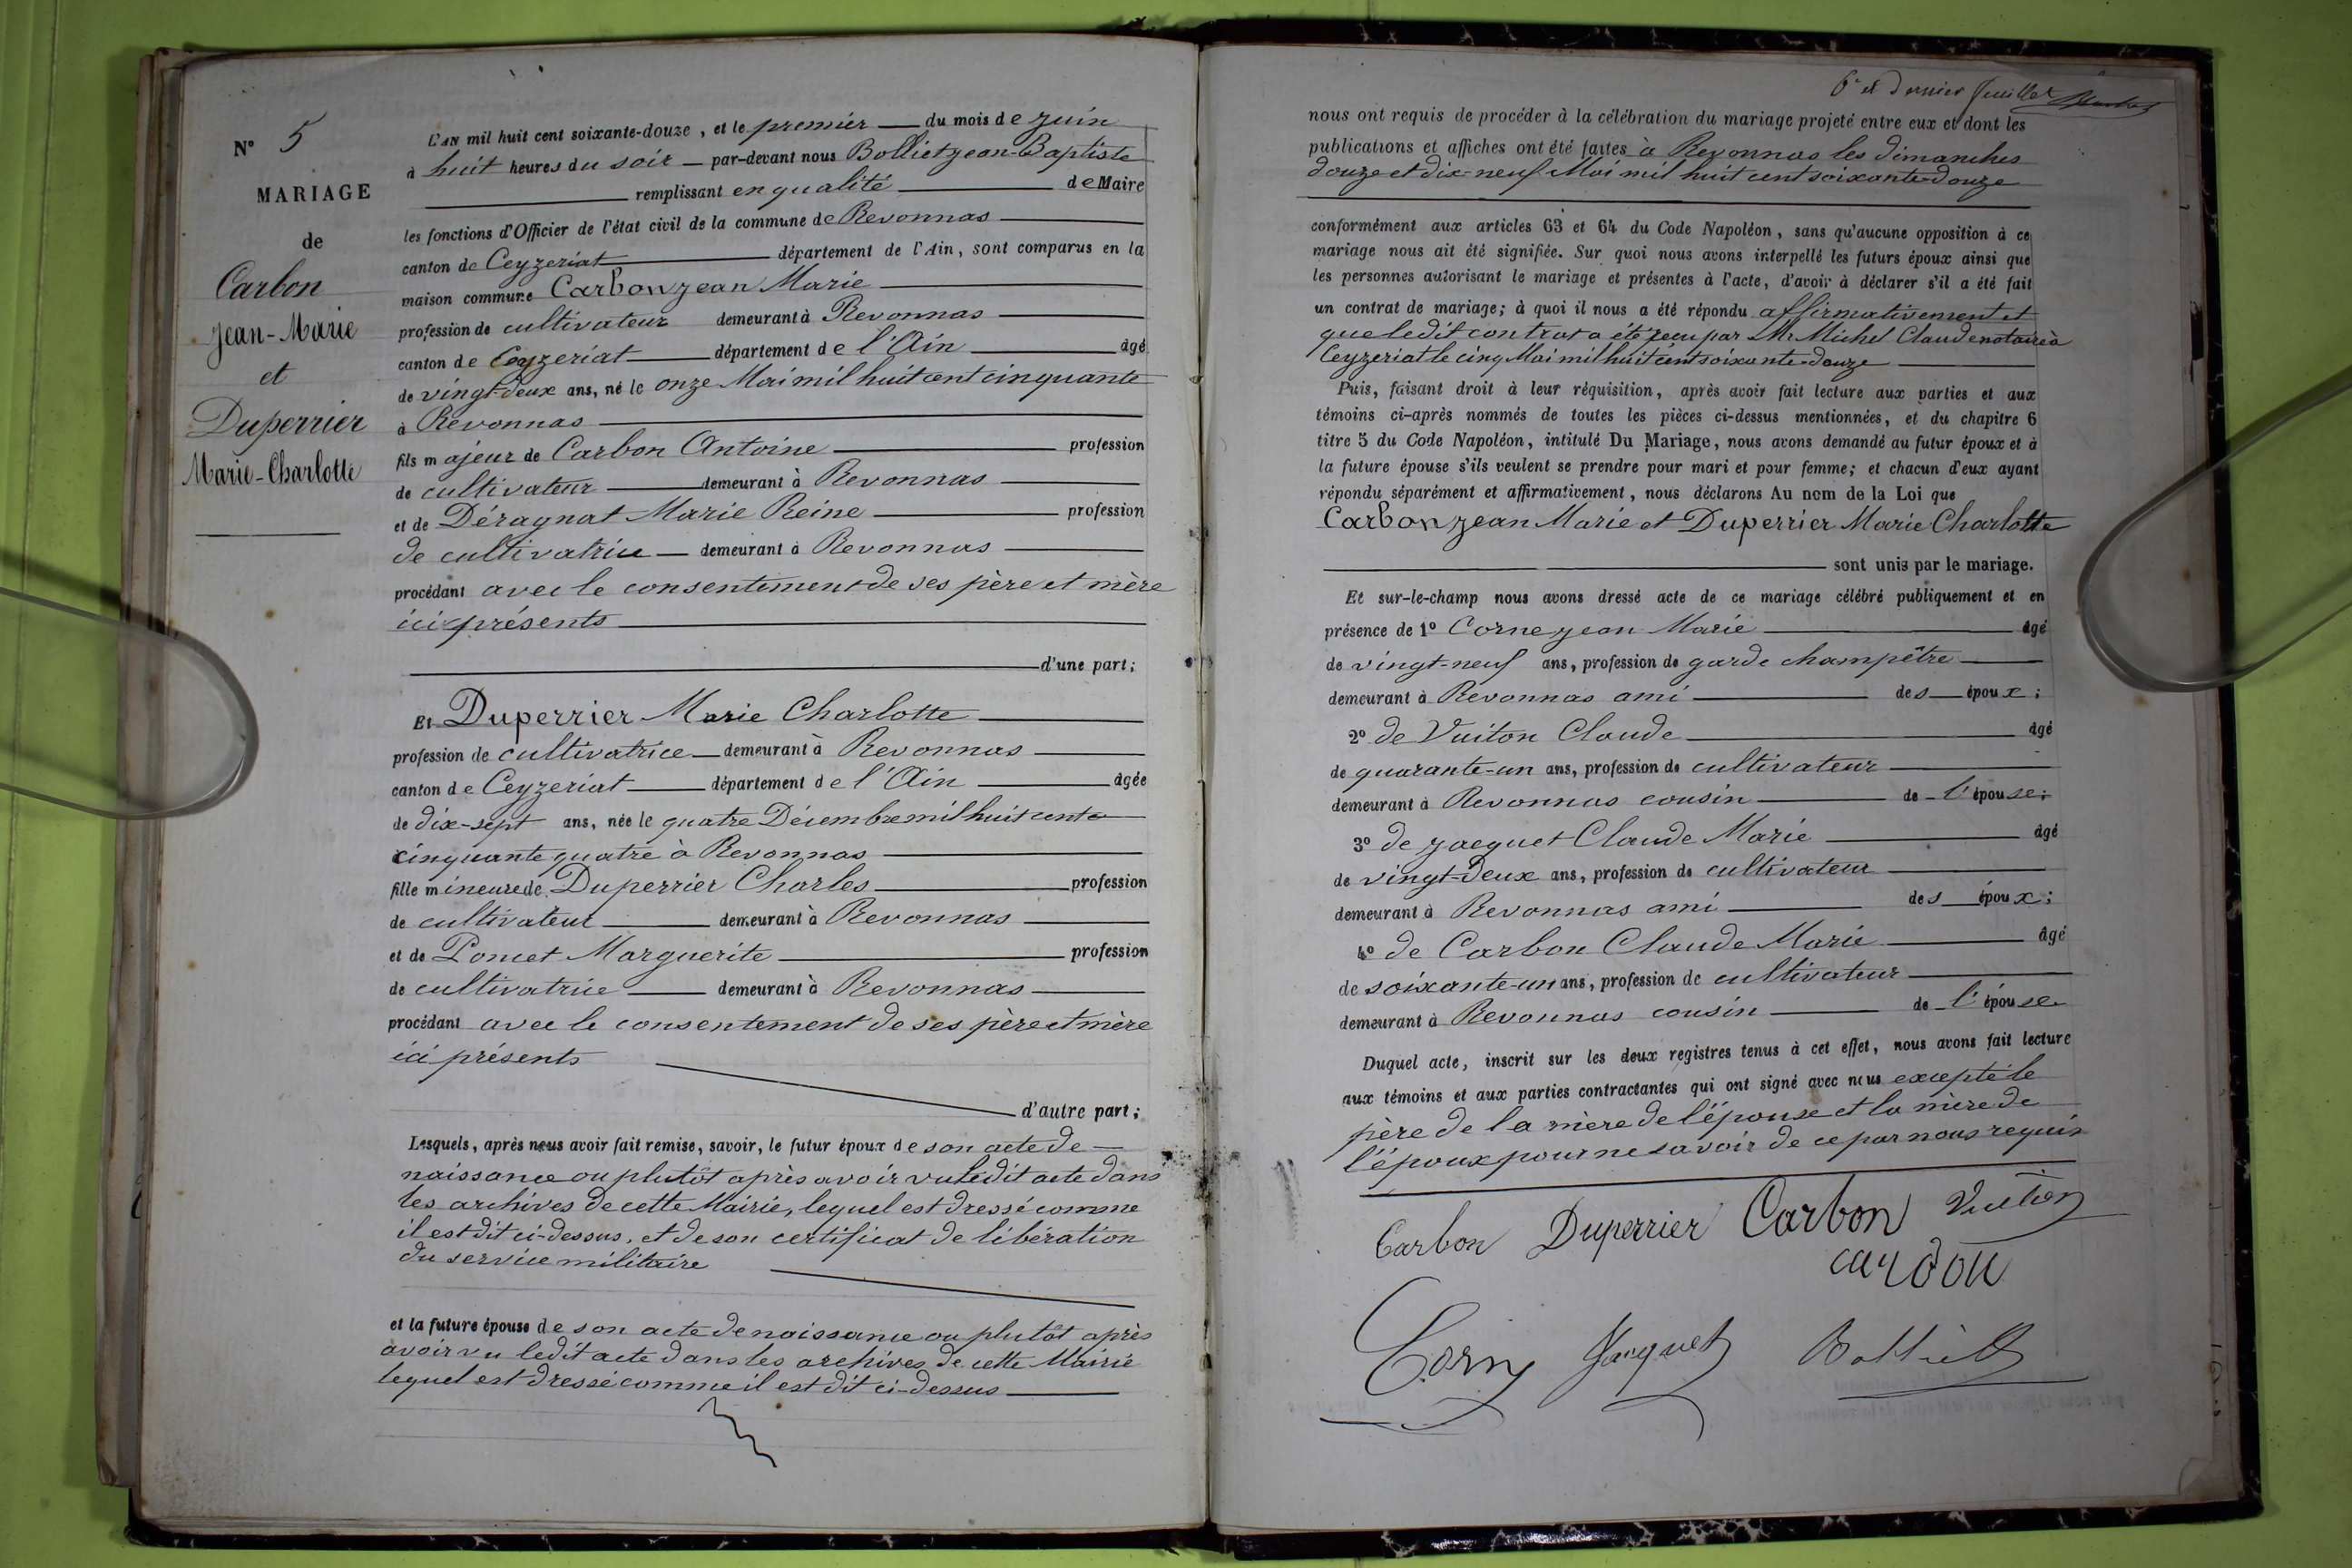 N° 5
MARIAGE
de
Carbon
Jean-Marie
et
Duperrier
Marie-Charlotte
L'AN mil huit cent soixante-douze, et le premier du mois de juin
à huit heures du soir par-devant nous Bolliet Jean-Baptiste
remplissant en qualité de Maire
les fonctions d'Officier de l'état civil de la commune de Revonnas
canton de Ceyzeriat département de l'Ain, sont comparus en la
maison commune Carbon Jean Marie
profession de cultivateur demeurant à Revonnas
canton de Ceyzeriat département de l'Ain âgé
de vingt-deux ans, né le onze Mai mil huit cent cinquante
à Revonnas
fils majeur de Carbon Antoine profession
de cultivateur demeurant à Revonnas
et de Déragnat Marie Reine profession
de cultivatrice demeurant à Revonnas
procédant avec le consentement de ses père et mère
ici présents
d'une part;
Et Duperrier Marie Charlotte
profession de cultivatrice demeurant à Revonnas
canton de Ceyzeriat département de l'Ain âgée
de dix-sept ans, née le quatre Décembre mil huit cent
cinquante quatre à Revonnas
fille mineure de Duperrier Charles profession
de cultivateur demeurant à Revonnas
et de Poncet Marguerite profession
de cultivatrice demeurant à Revonnas
procédant avec le consentement de ses père et mère
ici présents
d'autre part;
Lesquels, après nous avoir fait remise, savoir, le futur époux de son acte de
naissance ou plutôt après avoir vu ledit acte dans
les archives de cette Mairie, lequel est dressé comme
il est dit ci-dessus, et de son certificat de libération
du service militaire
et la future épouse de son acte de naissance ou plutôt après
avoir vu ledit acte dans les archives de cette Mairie
lequel est dressé comme il est dit ci-dessus
6e et dernier feuillet
nous ont requis de procéder à la célébration du mariage projeté entre eux et dont les
publications et affiches ont été faites à Revonnas les dimanches
douze et dix-neuf Mai mil huit cent soixante-douze
conformément aux articles 63 et 64 du Code Napoléon, sans qu'aucune opposition à ce
mariage nous ait été signifiée. Sur quoi nous avons interpellé les futurs époux ainsi que
les personnes autorisant le mariage et présentes à l'acte, d'avoir à déclarer s'il a été fait
un contrat de mariage; à quoi il nous a été répondu affirmativement et
que ledit contrat a été reçu par Me Michel Claude notaire à
Ceyzeriat le cinq Mai mil huit cent soixante-douze
Puis, faisant droit à leur réquisition, après avoir fait lecture aux parties et aux
témoins ci-après nommés de toutes les pièces ci-dessus mentionnées, et du chapitre 6
titre 5 du Code Napoléon, intitulé Du Mariage, nous avons demandé au futur époux et à
la future épouse s'ils veulent se prendre pour mari et pour femme; et chacun d'eux ayant
répondu séparément et affirmativement, nous déclarons Au nom de la Loi que
Carbon Jean Marie et Duperrier Marie Charlotte
sont unis par le mariage.
Et sur-le-champ nous avons dressé acte de ce mariage célébré publiquement et en
présence de 1° Corne Jean Marie âgé
de vingt-neuf ans, profession de garde champêtre
demeurant à Revonnas ami des époux;
2° de Vuiton Claude âgé
de quarante-un ans, profession de cultivateur
demeurant à Revonnas cousin de l'épouse;
3° de Jacquet Claude Marie âgé
de vingt-deux ans, profession de cultivateur
demeurant à Revonnas ami des époux;
4° de Carbon Claude Marie âgé
de soixante-un ans, profession de cultivateur
demeurant à Revonnas cousin de l'épouse
Duquel acte, inscrit sur les deux registres tenus à cet effet, nous avons fait lecture
aux témoins et aux parties contractantes qui ont signé avec nous excepté le
père de la mère de l'épouse et la mère de
l'époux pour ne savoir de ce par nous requis
Carbon Duperrier Carbon Vuiton
Carbon
Corne Jacquet Bolliet